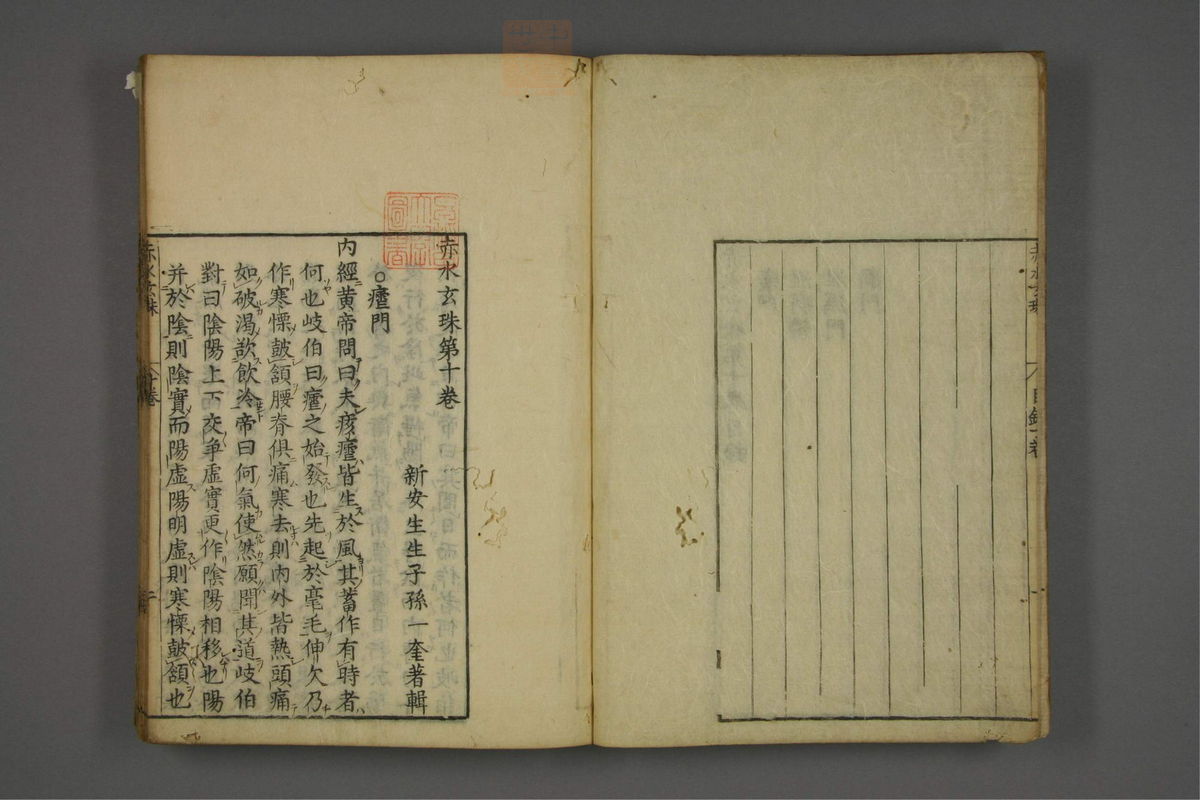 赤水玄珠第十卷
新安生生子孫一奎著輯
○瘧門
內經黃帝問曰夫痎瘧皆生於風其蓄作有時者
何也岐伯曰瘧之始發也先起於毫毛伸欠乃
作寒慄鼓頷腰脊俱痛寒去則內外皆熱頭痛
如破渴欲飲冷帝曰何氣使然願聞其道岐伯
對曰陰陽上下交爭虛實更作陰陽相移也陽
并於陰則陰實而陽虛陽明虛則寒慄鼓頷也
赤水玄珠
十卷